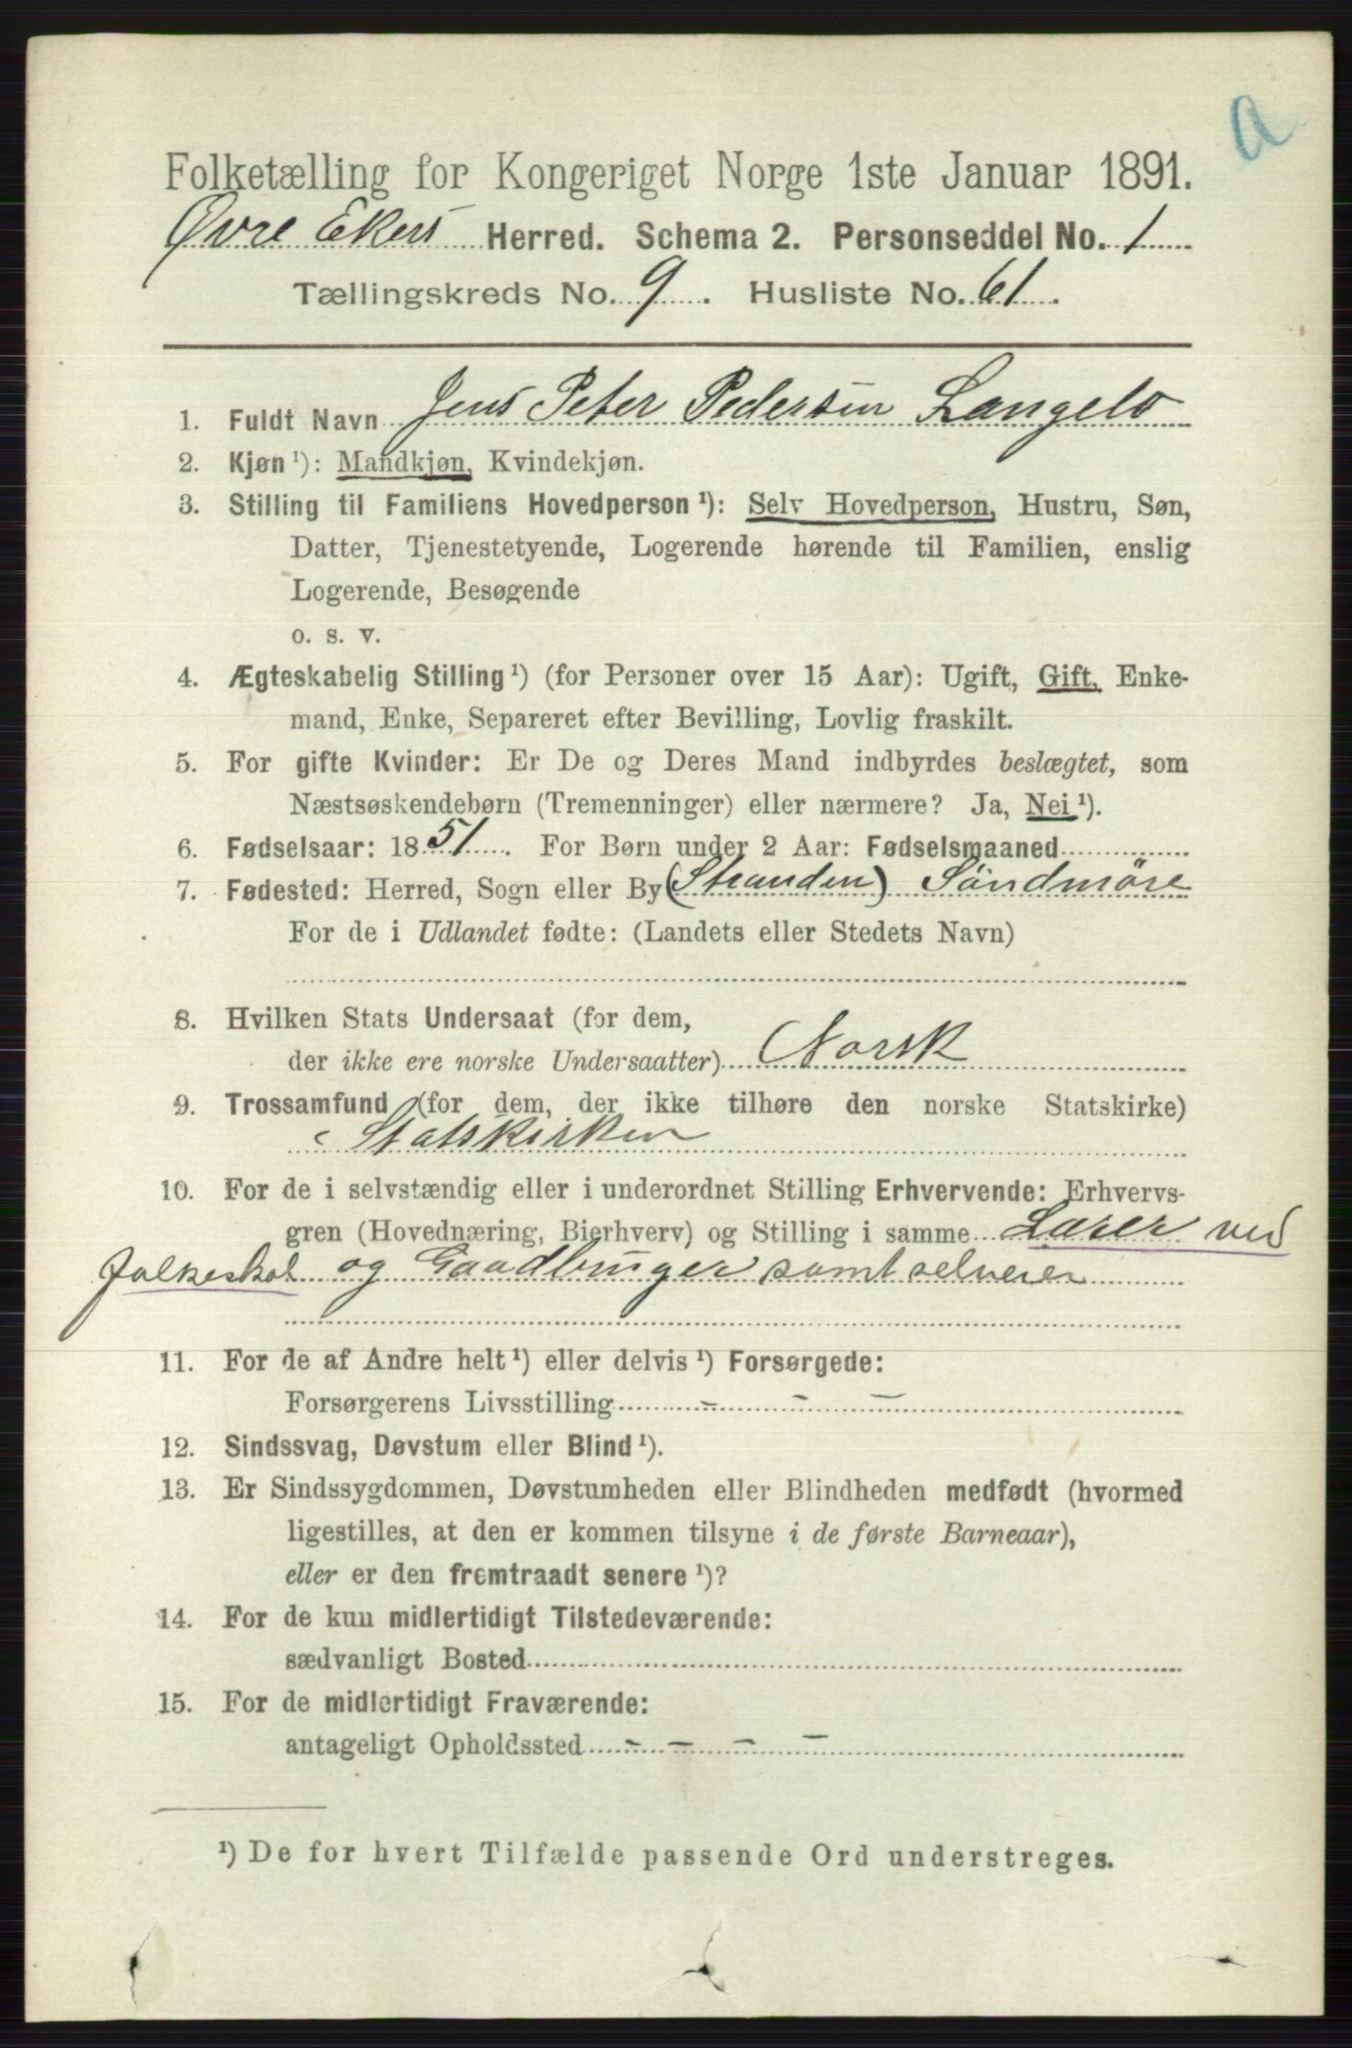 a
Folketælling for Kongeriget Norge 1ste Januar 1891.
Øvre Ekers Herred. Schema 2. Personseddel No. 1
Tællingskreds No. 9. Husliste No. 61.
1. Fuldt Navn Jens Peter Pedersen Langelo
2. Kjøn¹): Mandkjøn, Kvindekjøn.
3. Stilling til Familiens Hovedperson¹): Selv Hovedperson, Hustru, Søn,
Datter, Tjenestetyende, Logerende hørende til Familien, enslig
Logerende, Besøgende
o. s. v.
4. Ægteskabelig Stilling¹) (for Personer over 15 Aar): Ugift, Gift, Enke-
mand, Enke, Separeret efter Bevilling, Lovlig fraskilt.
5. For gifte Kvinder: Er De og Deres Mand indbyrdes beslægtet, som
Næstsøskendebørn (Tremenninger) eller nærmere? Ja, Nei¹).
6. Fødselsaar: 1851. For Børn under 2 Aar: Fødselsmaaned
7. Fødested: Herred, Sogn eller By (Stranden) Söndmöre
For de i Udlandet fødte: (Landets eller Stedets Navn)
8. Hvilken Stats Undersaat (for dem,
der ikke ere norske Undersaatter) Norsk
9. Trossamfund (for dem, der ikke tilhøre den norske Statskirke)
Statskirken
10. For de i selvstændig eller i underordnet Stilling Erhvervende: Erhvervs-
gren (Hovednæring, Bierhverv) og Stilling i samme Lærer ved
folkeskol og Gaadbruger samt selveier
11. For de af Andre helt¹) eller delvis¹) Forsørgede:
Forsørgerens Livsstilling - - -
12. Sindssvag, Døvstum eller Blind¹).
13. Er Sindssygdommen, Døvstumheden eller Blindheden medfødt (hvormed
ligestilles, at den er kommen tilsyne i de første Barneaar),
eller er den fremtraadt senere¹)?
14. For de kun midlertidigt Tilstedeværende:
sædvanligt Bosted
15. For de midlertidigt Fraværende:
antageligt Opholdssted - - - -
¹) De for hvert Tilfælde passende Ord understreges.